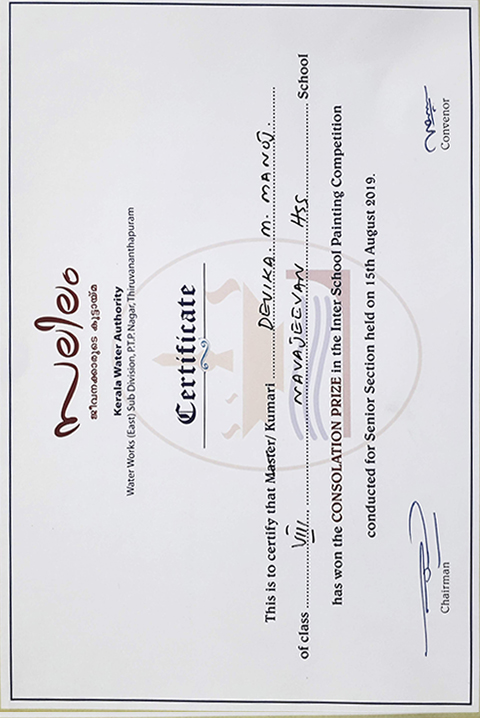 സലിലം
ജീവനക്കാരുടെ കൂട്ടായ്മ
Kerala Water Authority
Water Works (East) Sub Division, P.T.P. Nagar, Thiruvananthapuram
Certificate
This is to certify that Master/ Kumari DEVIKA. M. MANOJ.
of class VIII NAVAJEEVAN HSS School
has won the CONSOLATION PRIZE in the Inter School Painting Competition
conducted for Senior Section held on 15th August 2019.
Chairman
Convenor